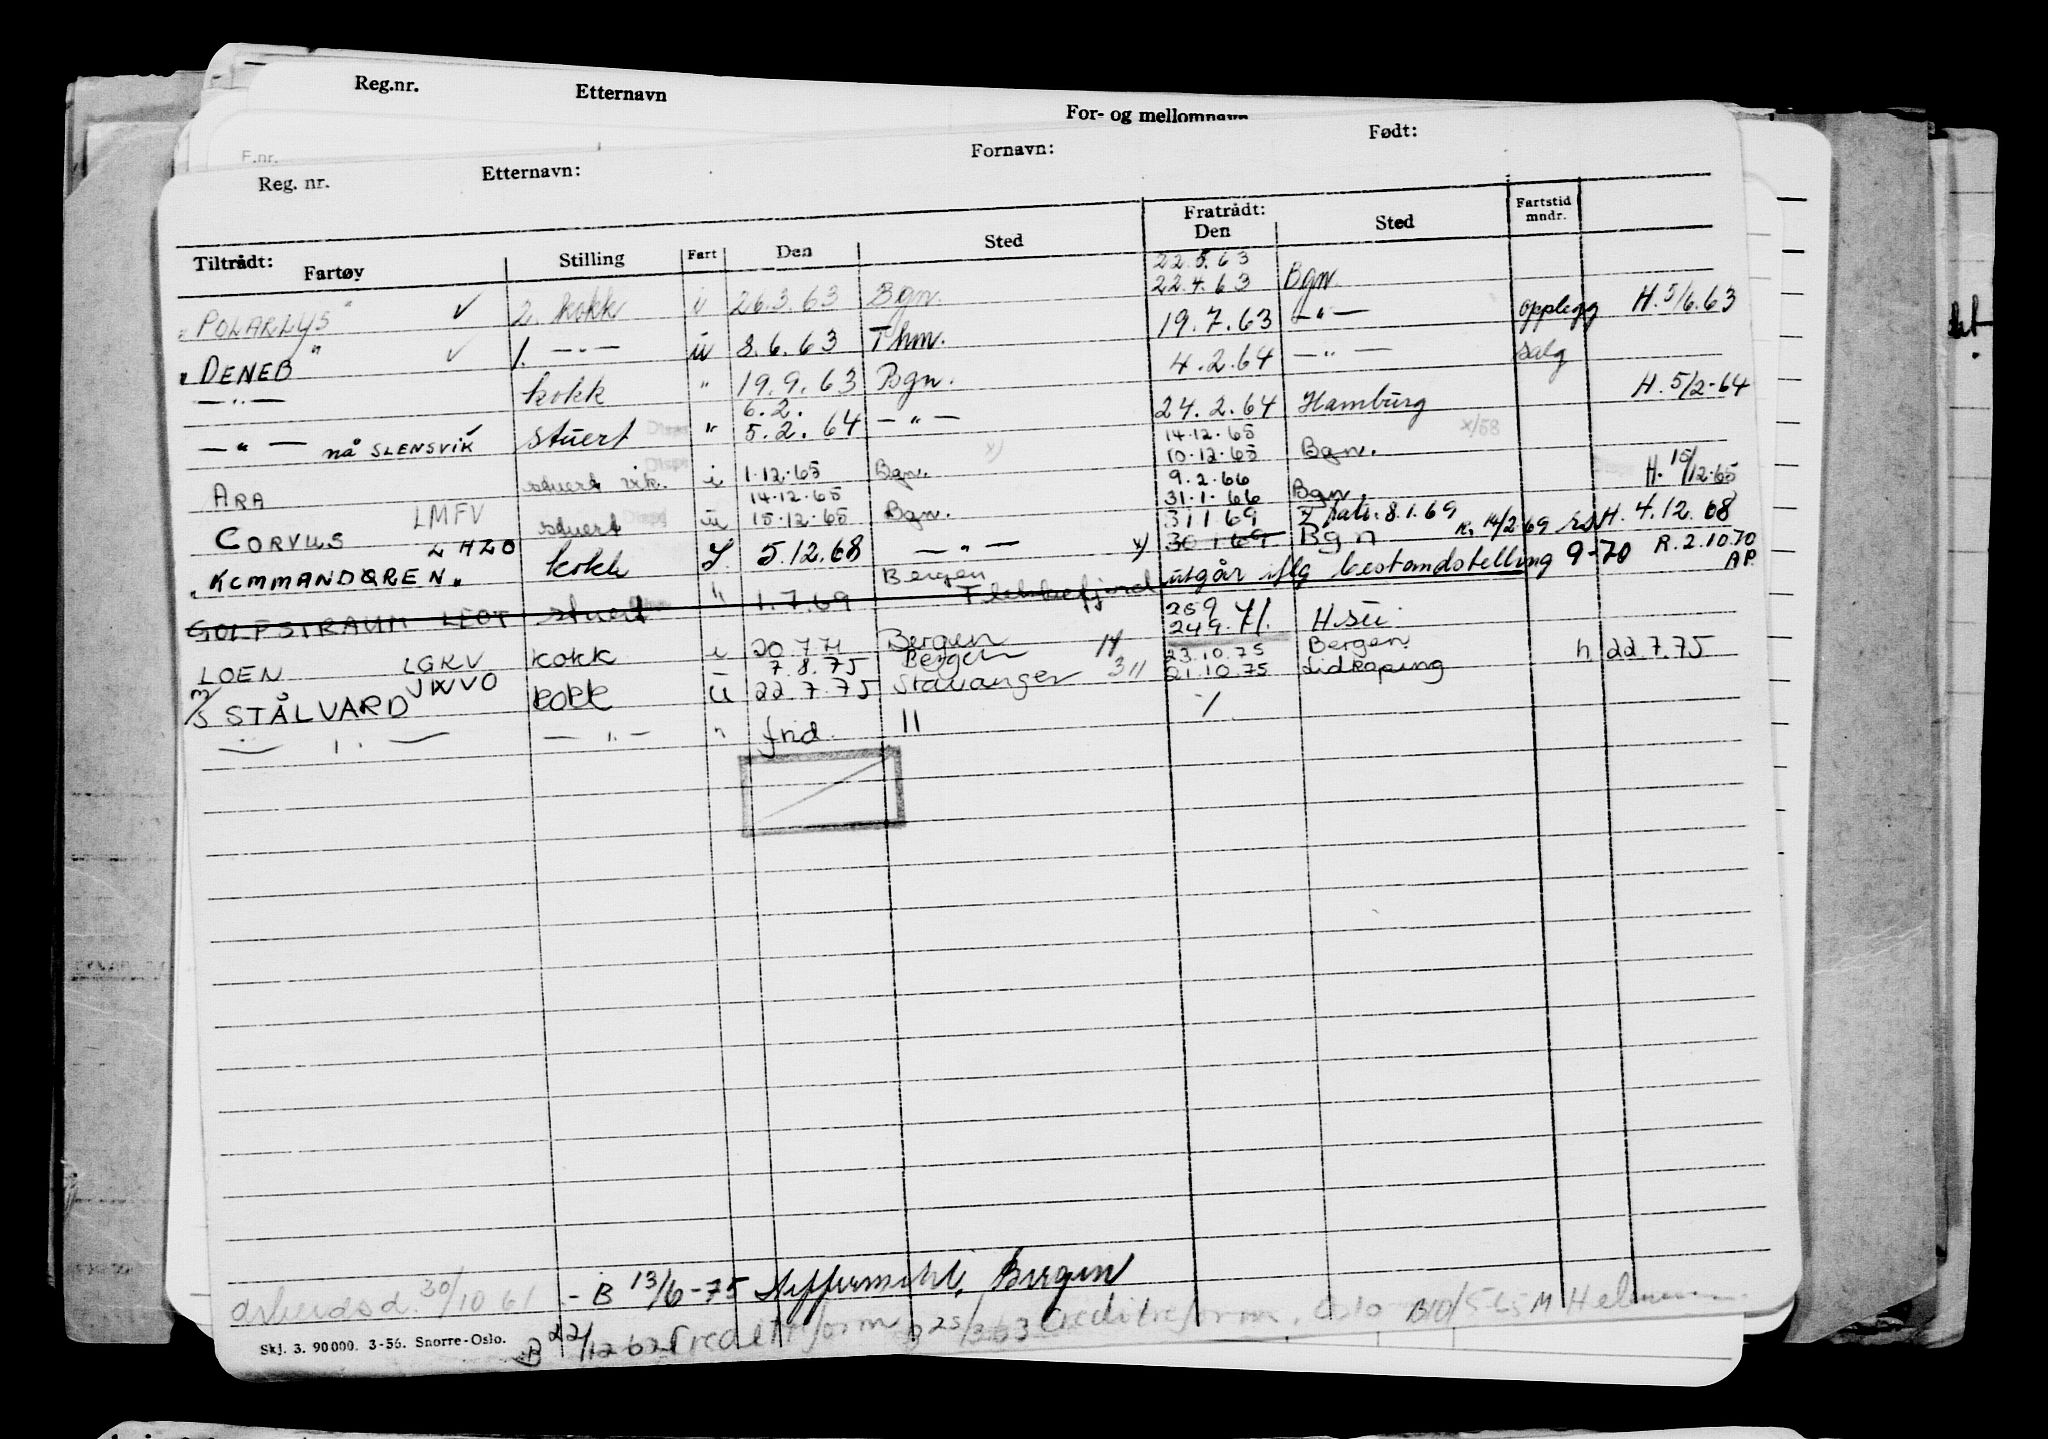 Reg.nr. Etternavn For- og mellomnavn
F.nr.
Reg. nr. Etternavn: Fornavn: Født:
Tiltrådt: Fartøy Stilling Fart Den Sted Fratrådt: Den Sted Fartstid mndr.
22.5.63
"POLARLYS" ✓ 2. kokk i 26.3.63 Bgn. 22.4.63 Bgn.
"DENEB" ✓ 1. —"— ü 8.6.63 Thm. 19.7.63 —"— opplegg H. 5/6.63
—"— kokk " 19.9.63 Bgn. 4.2.64 —"— salg
6.2.
—"— nå SLENSVIK ✓ stuert " 5.2.64 —"— 24.2.64 Hamburg H. 5/2-64
14.12.65 x/58
ARA stuert vik. i 1.12.65 Bgn. 10.12.65 Bgn.
14.12.65 9.2.66
CORVUS LMFV stuert ü 15.12.65 Bgn. 31.1.66 Bgn. H. 15/12.65
31 1 69 8.1.69 R. 14/2.69
"KOMMANDØREN" LHZO kokk 5.12.68 —"— x) 30 1 69 Bgn H. 4.12.68
Bergen
GOLFSTRAUM LEOT stuert " 1.7.69 Flekkefjord utgår iflg bestandstelling 9-70 R. 2.10.70 AP.
25 9
LOEN LGKV kokk i 20.7.71 Bergen 24 9. 71. H.sü.
7.8.75 Bergen 14 23.10.75 Bergen
M/S STÅLVARD JXVO kokk ü 22.7.75 Stavanger 3 11 21.10.75 Lidköping h 22.7.75
—"— —"— " frid. 11 /
arbeidsd. 30/10 61 - B 13/6-75 Bergen
B 22/12 62 Kreditreform B 25/3 63 Creditreform, Oslo
Skj. 3. 90000. 3-56. Snorre-Oslo.